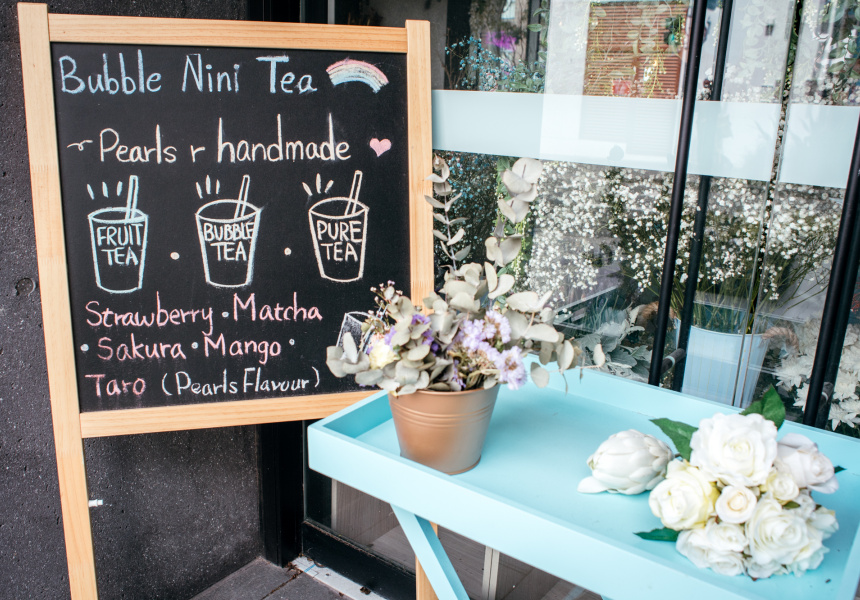 Bubble Nini Tea
Pearls r handmade
FRUIT TEA
BUBBLE TEA
PURE TEA
Strawberry • Matcha
• Sakura • Mango •
Taro (Pearls Flavour)